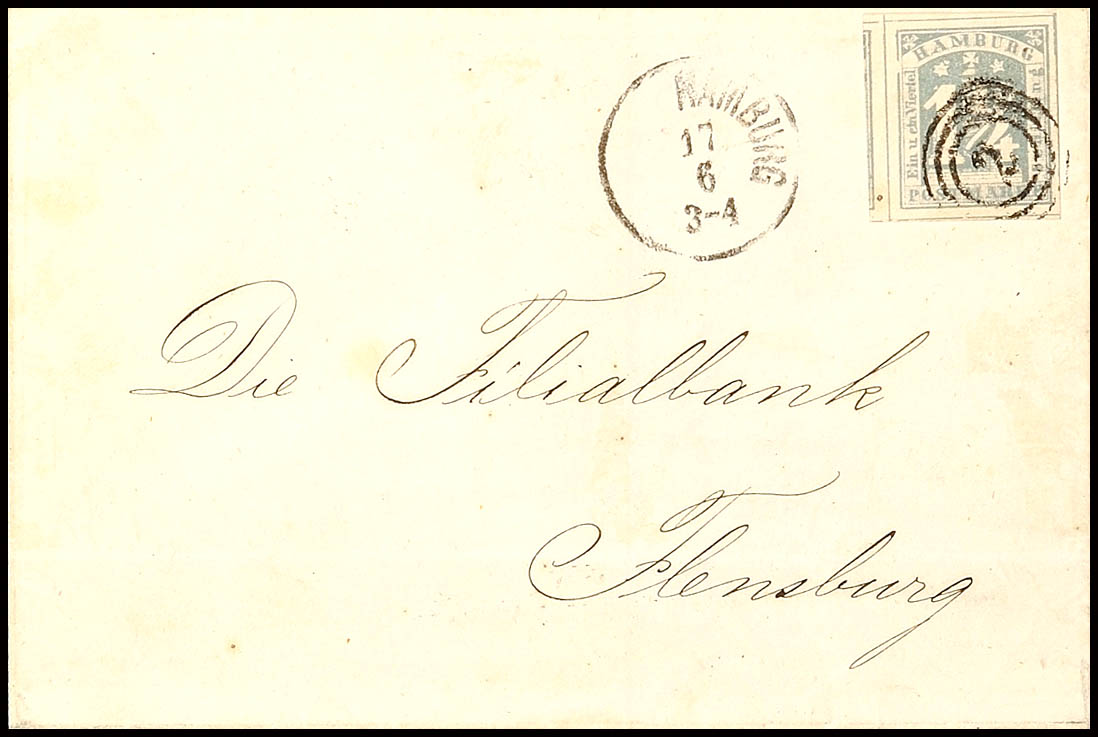 HAMBURG
Ein u. ein Viertel
1 1/4
POSTMARKE
2
HAMBURG
17
6
3-4
Die Filialbank
Flensburg